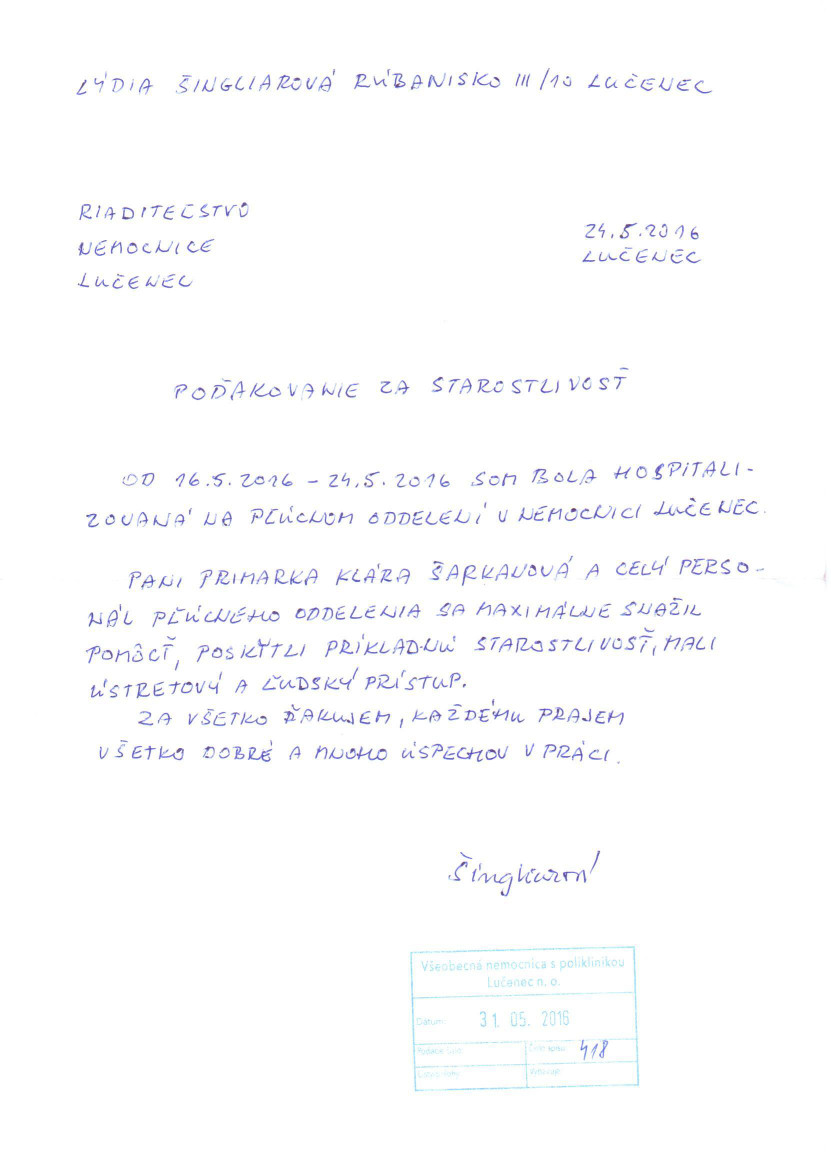 LÝDIA ŠINGLIAROVÁ RÚBANISKO III/10 LUČENEC
RIADITEĽSTVO
NEMOCNICE
LUČENEC
24.5.2016
LUČENEC
POĎAKOVANIE ZA STAROSTLIVOSŤ
OD 16.5.2016 – 24.5.2016 SOM BOLA HOSPITALI-
ZOVANÁ NA PĽÚCNOM ODDELENÍ V NEMOCNICI LUČENEC.
PANI PRIMARKA KLÁRA ŠARKANOVÁ A CELÝ PERSO-
NÁL PĽÚCNÉHO ODDELENIA SA MAXIMÁLNE SNAŽIL
POMÔCŤ, POSKYTLI PRÍKLADNÚ STAROSTLIVOSŤ, MALI
ÚSTRETOVÝ A ĽUDSKÝ PRÍSTUP.
ZA VŠETKO ĎAKUJEM, KAŽDÉMU PRAJEM
VŠETKO DOBRÉ A MNOHO ÚSPECHOV V PRÁCI.
Šingliarová
Všeobecná nemocnica s poliklinikou
Lučenec n. o.
Dátum: 31. 05. 2016
Číslo spisu: 418